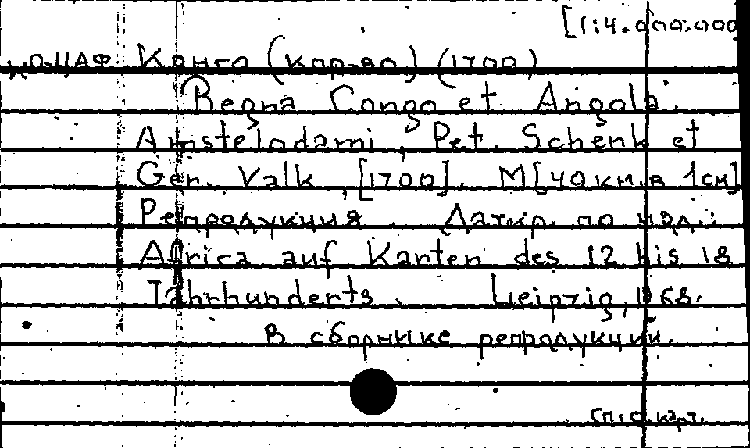 [1:4.000.000
Ю-ЦАФ Конго (кор-во) (1700)
Regna Congo et Angola.
Amstelodami, Pet. Schenk et
Ger. Valk, [1700]. М[40км.в 1см]
Репродукция. Датир. по изд.:
Africa auf Karten des 12 bis 18
Jahrhunderts. Leipzig, 1968.
В сборнике репродукций.
карт.